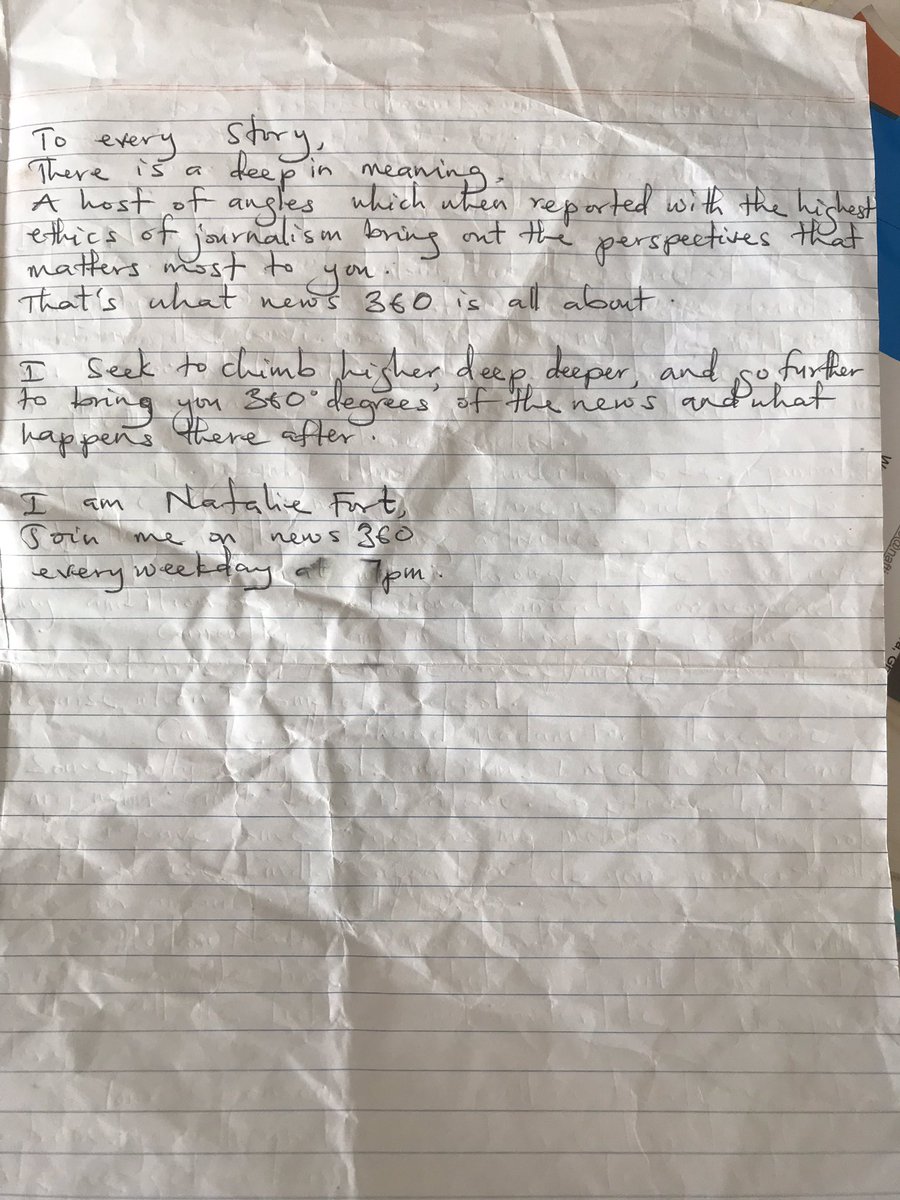 To every Story,
There is a deep in meaning.
A host of angles which when reported with the highest
ethics of journalism bring out the perspectives that
matters most to you.
That's what news 360 is all about.
I Seek to chimb higher, deep deeper, and go further
to bring you 360° degrees of the news and what
happens there after.
I am Natalie Fort,
Join me on news 360
every weekday at 7pm.